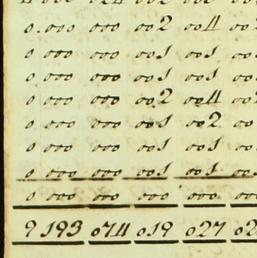 0.000 000 002 004 002
0 000 000 001 001 00
0 000 000 001 001 00
0 000 000 002 004 002
0 000 000 001 002 00
0 000 000 001 001 00
0 000 000 000 000 00
9 193 074 019 027 02